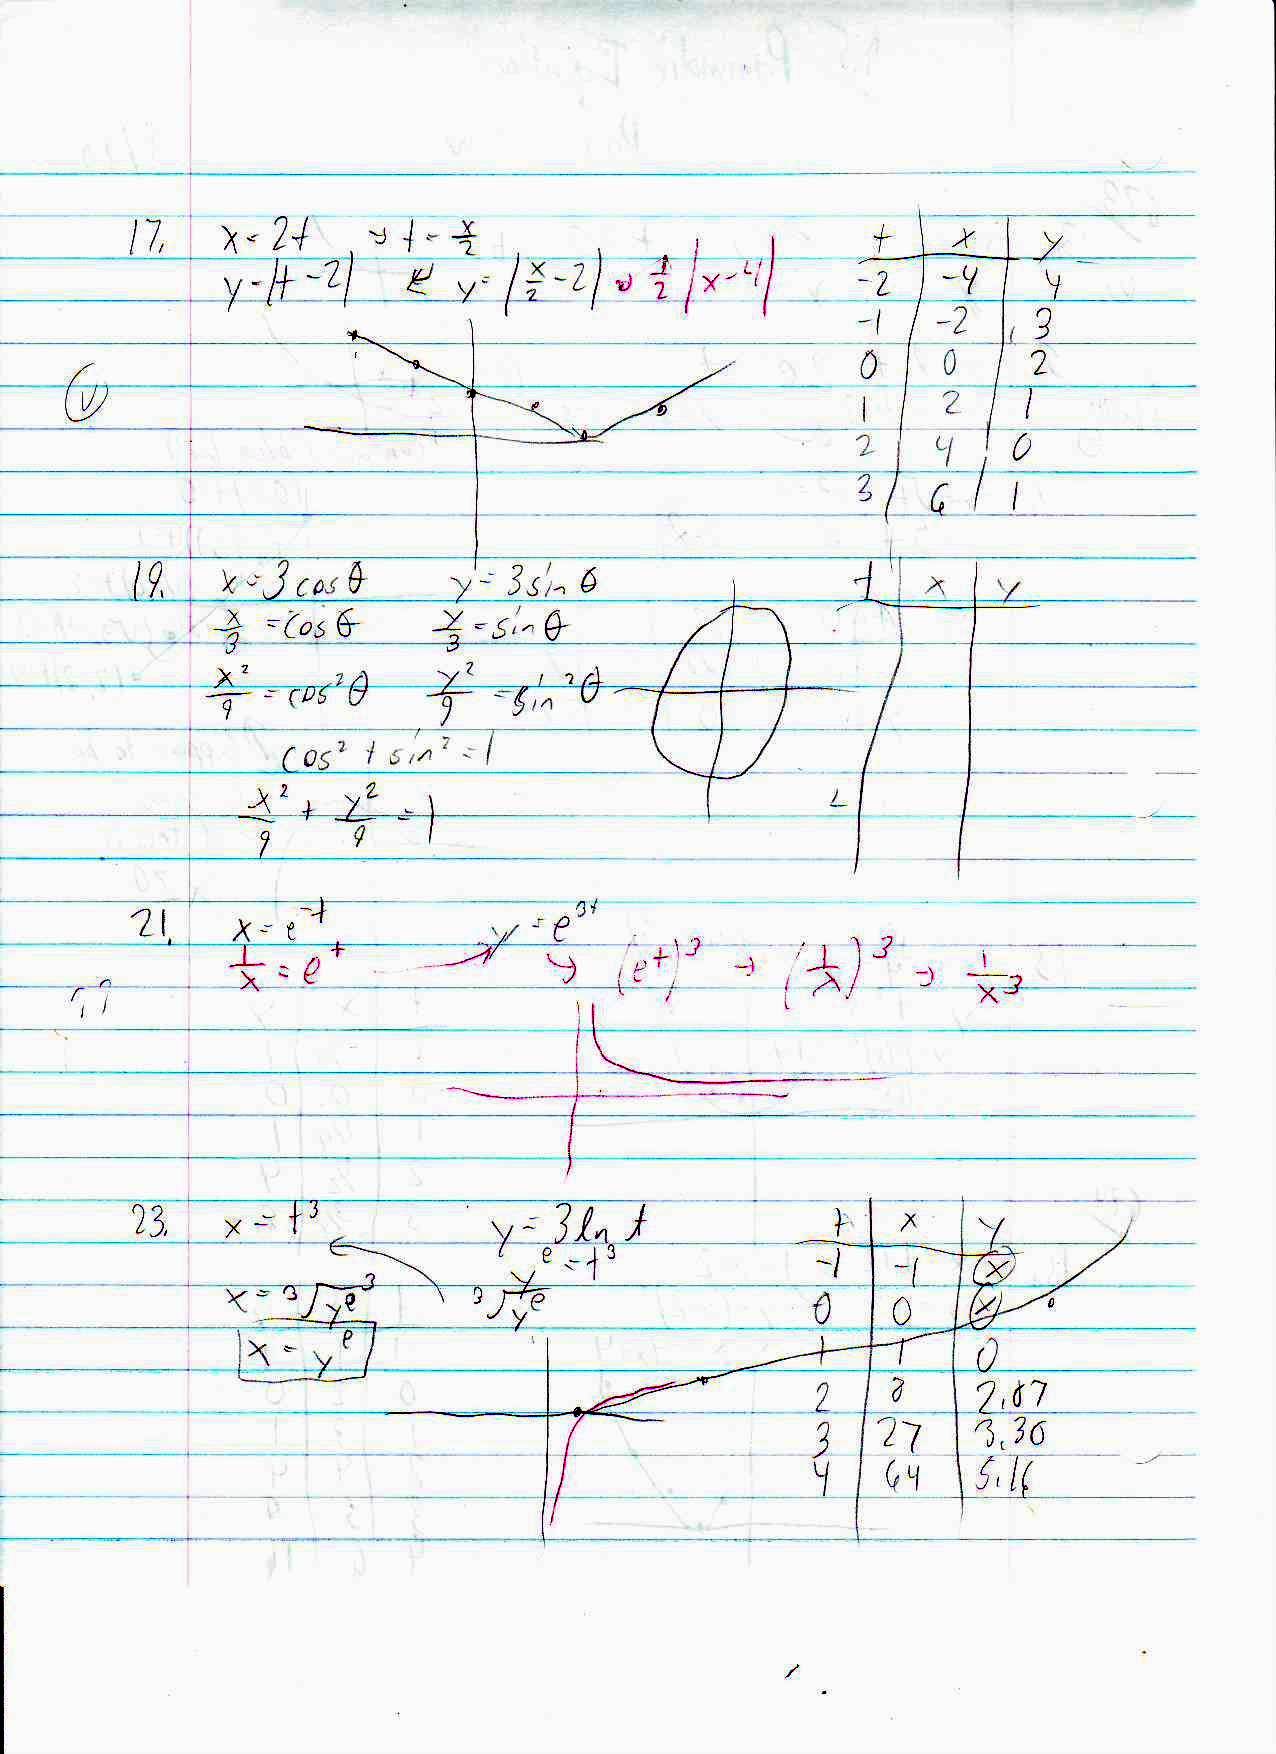 17. x = 2t → t = x/2
y = |t - 2| y = |x/2 - 2| → 1/2 |x - 4|
t x y
-2 -4 4
-1 -2 3
0 0 2
1 2 1
2 4 0
3 6 1
19. x = 3 cos θ y = 3 sin θ
x/3 = cos θ y/3 = sin θ
x²/9 = cos² θ y²/9 = sin² θ
cos² + sin² = 1
x²/9 + y²/9 = 1
t x y
21. x = e^-t y = e^3t
1/x = e^t → (e^t)³ → (1/x)³ → 1/x³
??
23. x = t³ y = 3 ln t
y^e = t³
x = ³√y^e ³ ³√y^e
x = y^e
t x y
-1 -1 x
0 0 x
1 1 0
2 8 2.07
3 27 3.30
4 64 5.16